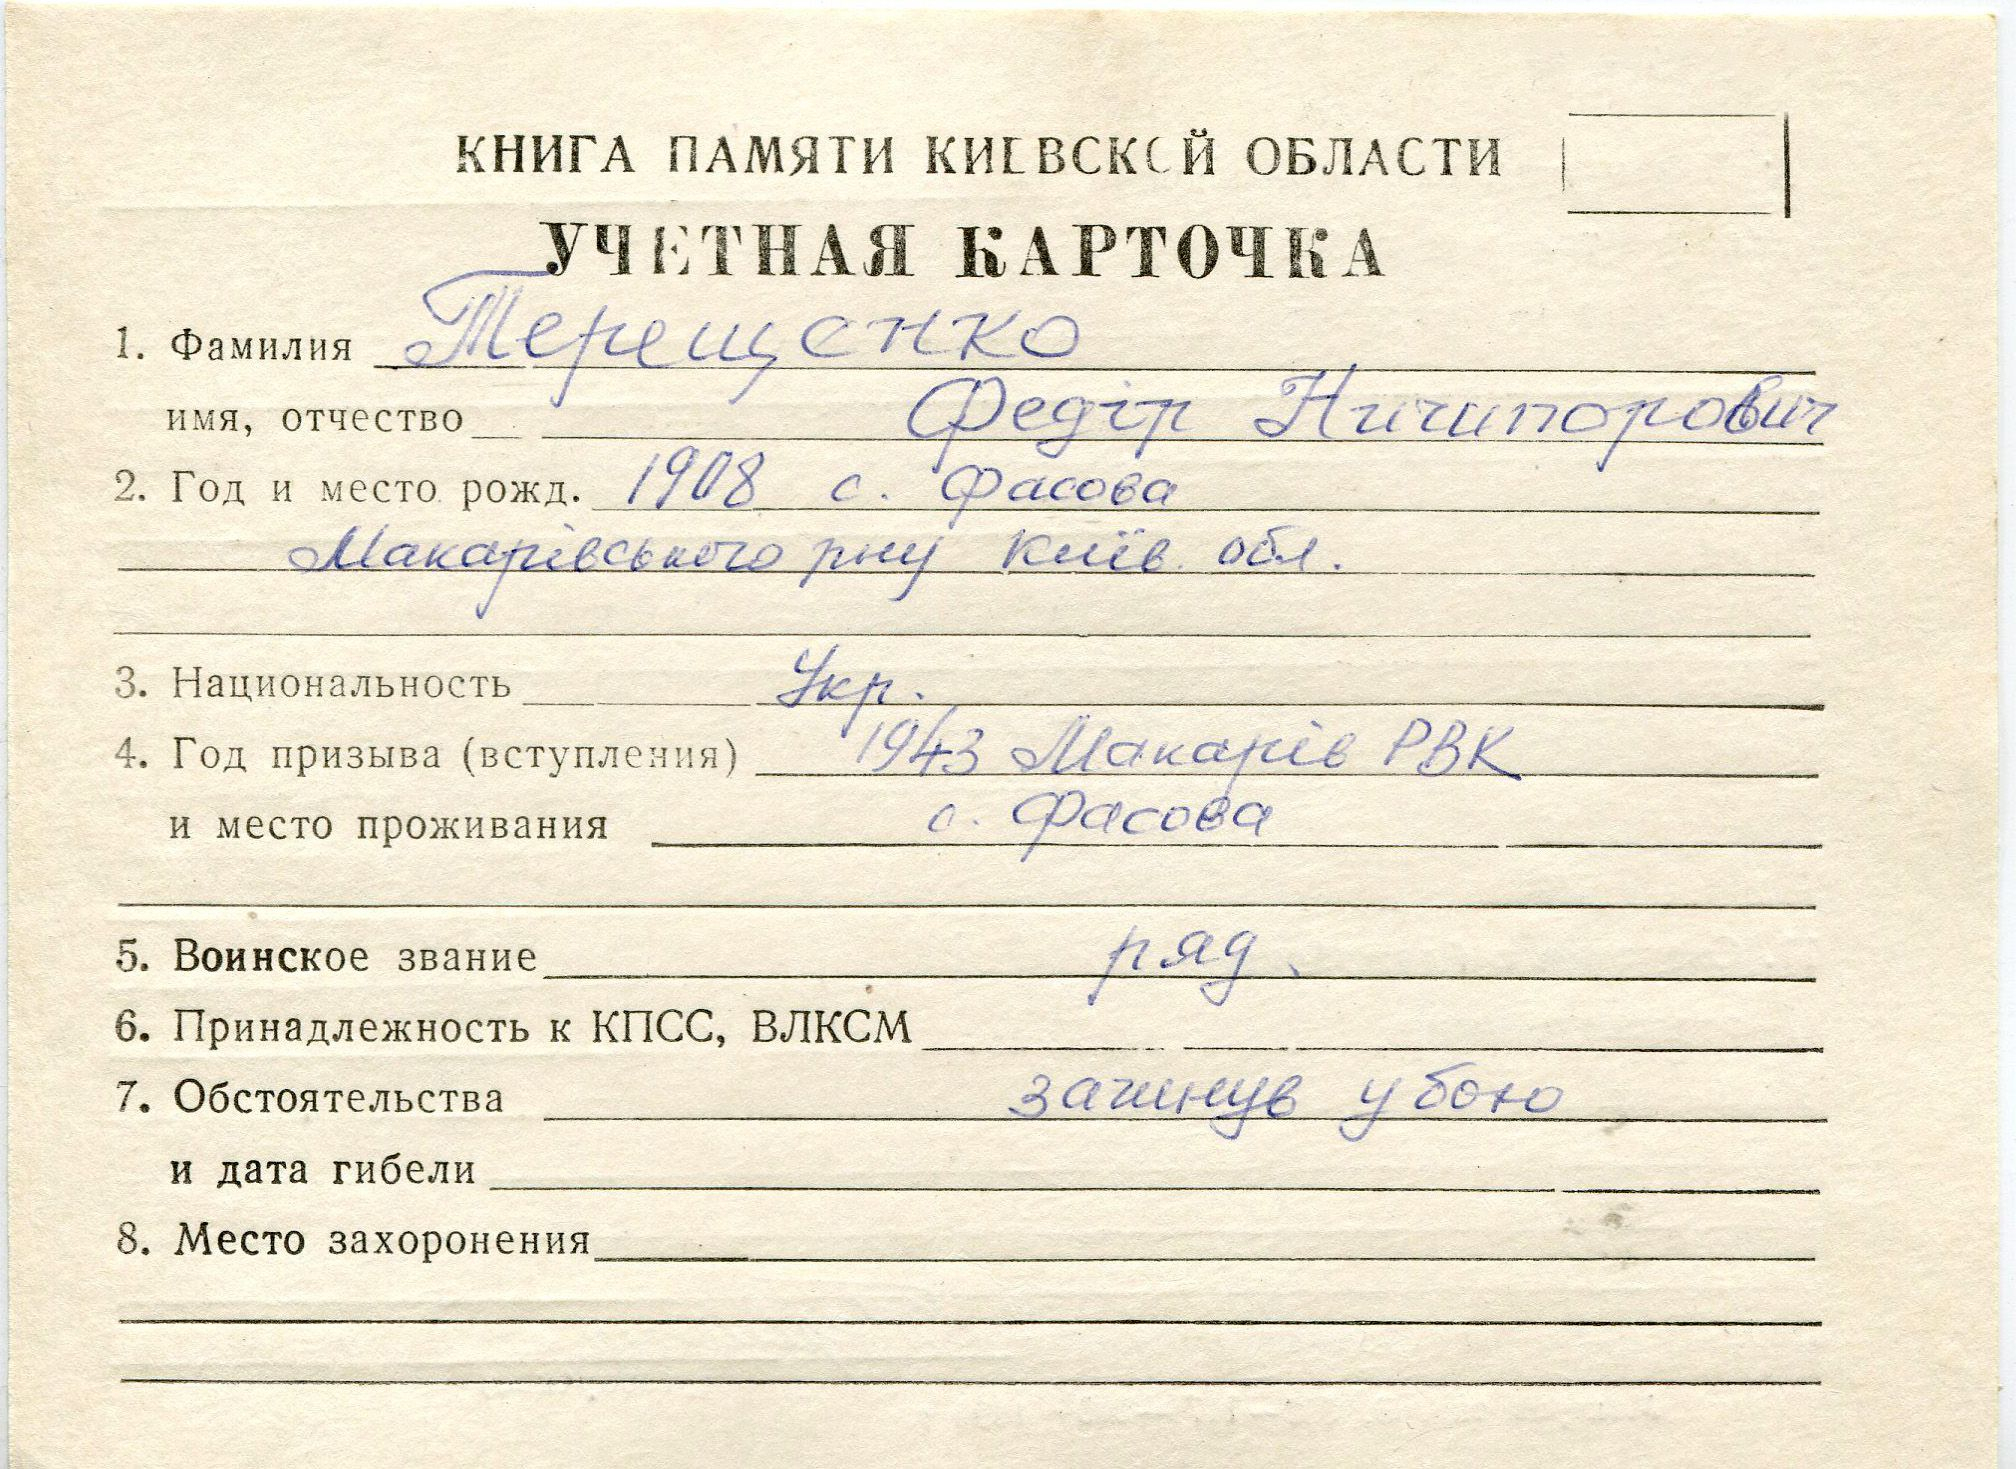 КНИГА ПАМЯТИ КИЕВСКОЙ ОБЛАСТИ
УЧЕТНАЯ КАРТОЧКА
1. Фамилия Терещенко
имя, отчество Федір Ничипорович
2. Год и место рожд. 1908 с. Фасова
Макарівського рну Київ. обл.
3. Национальность Укр.
4. Год призыва (вступления) 1943 Макарів РВК
и место проживания с. Фасова
5. Воинское звание ряд.
6. Принадлежность к КПСС, ВЛКСМ
7. Обстоятельства загинув у бою
и дата гибели
8. Место захоронения